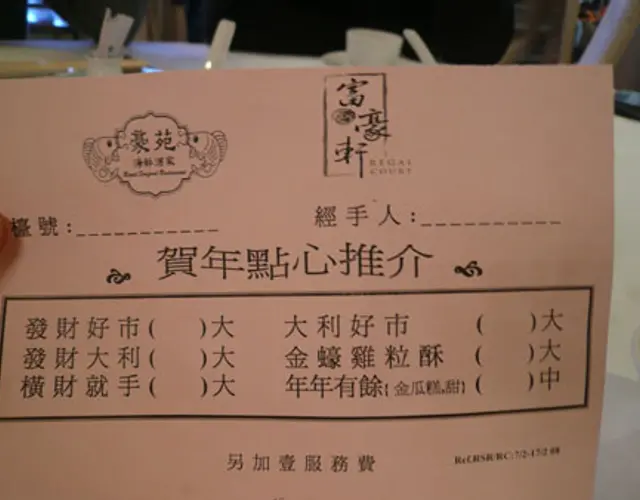 豪苑
海鮮酒家
富豪軒
REGAL
COURT
檯號:___________
經手人:___________
賀年點心推介
發財好市( )大
大利好市 ( )大
發財大利( )大
金蠔雞粒酥 ( )大
橫財就手( )大
年年有餘{金瓜糕,甜} ( )中
另加壹服務費
Ref.RSR/RC:7/2-17/2 08